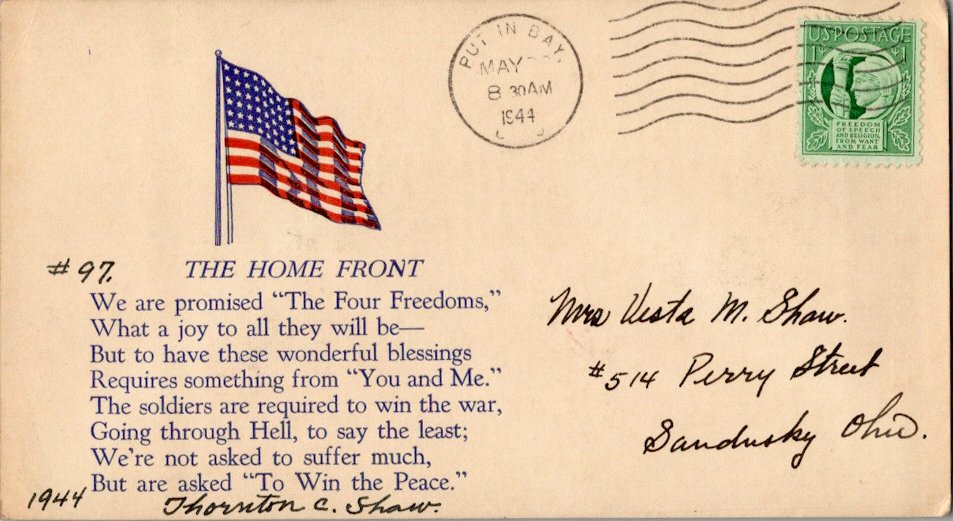 PUT IN BAY,
MAY
8 30AM
1944
U.S.POSTAGE
1 1
FREEDOM
OF SPEECH
AND RELIGION,
FROM WANT
AND FEAR
#97.
THE HOME FRONT
We are promised “The Four Freedoms,”
What a joy to all they will be—
But to have these wonderful blessings
Requires something from “You and Me.”
The soldiers are required to win the war,
Going through Hell, to say the least;
We’re not asked to suffer much,
But are asked “To Win the Peace.”
1944 Thornton C. Shaw.
Mrs Vesta M. Shaw.
#514 Perry Street
Sandusky Ohio.